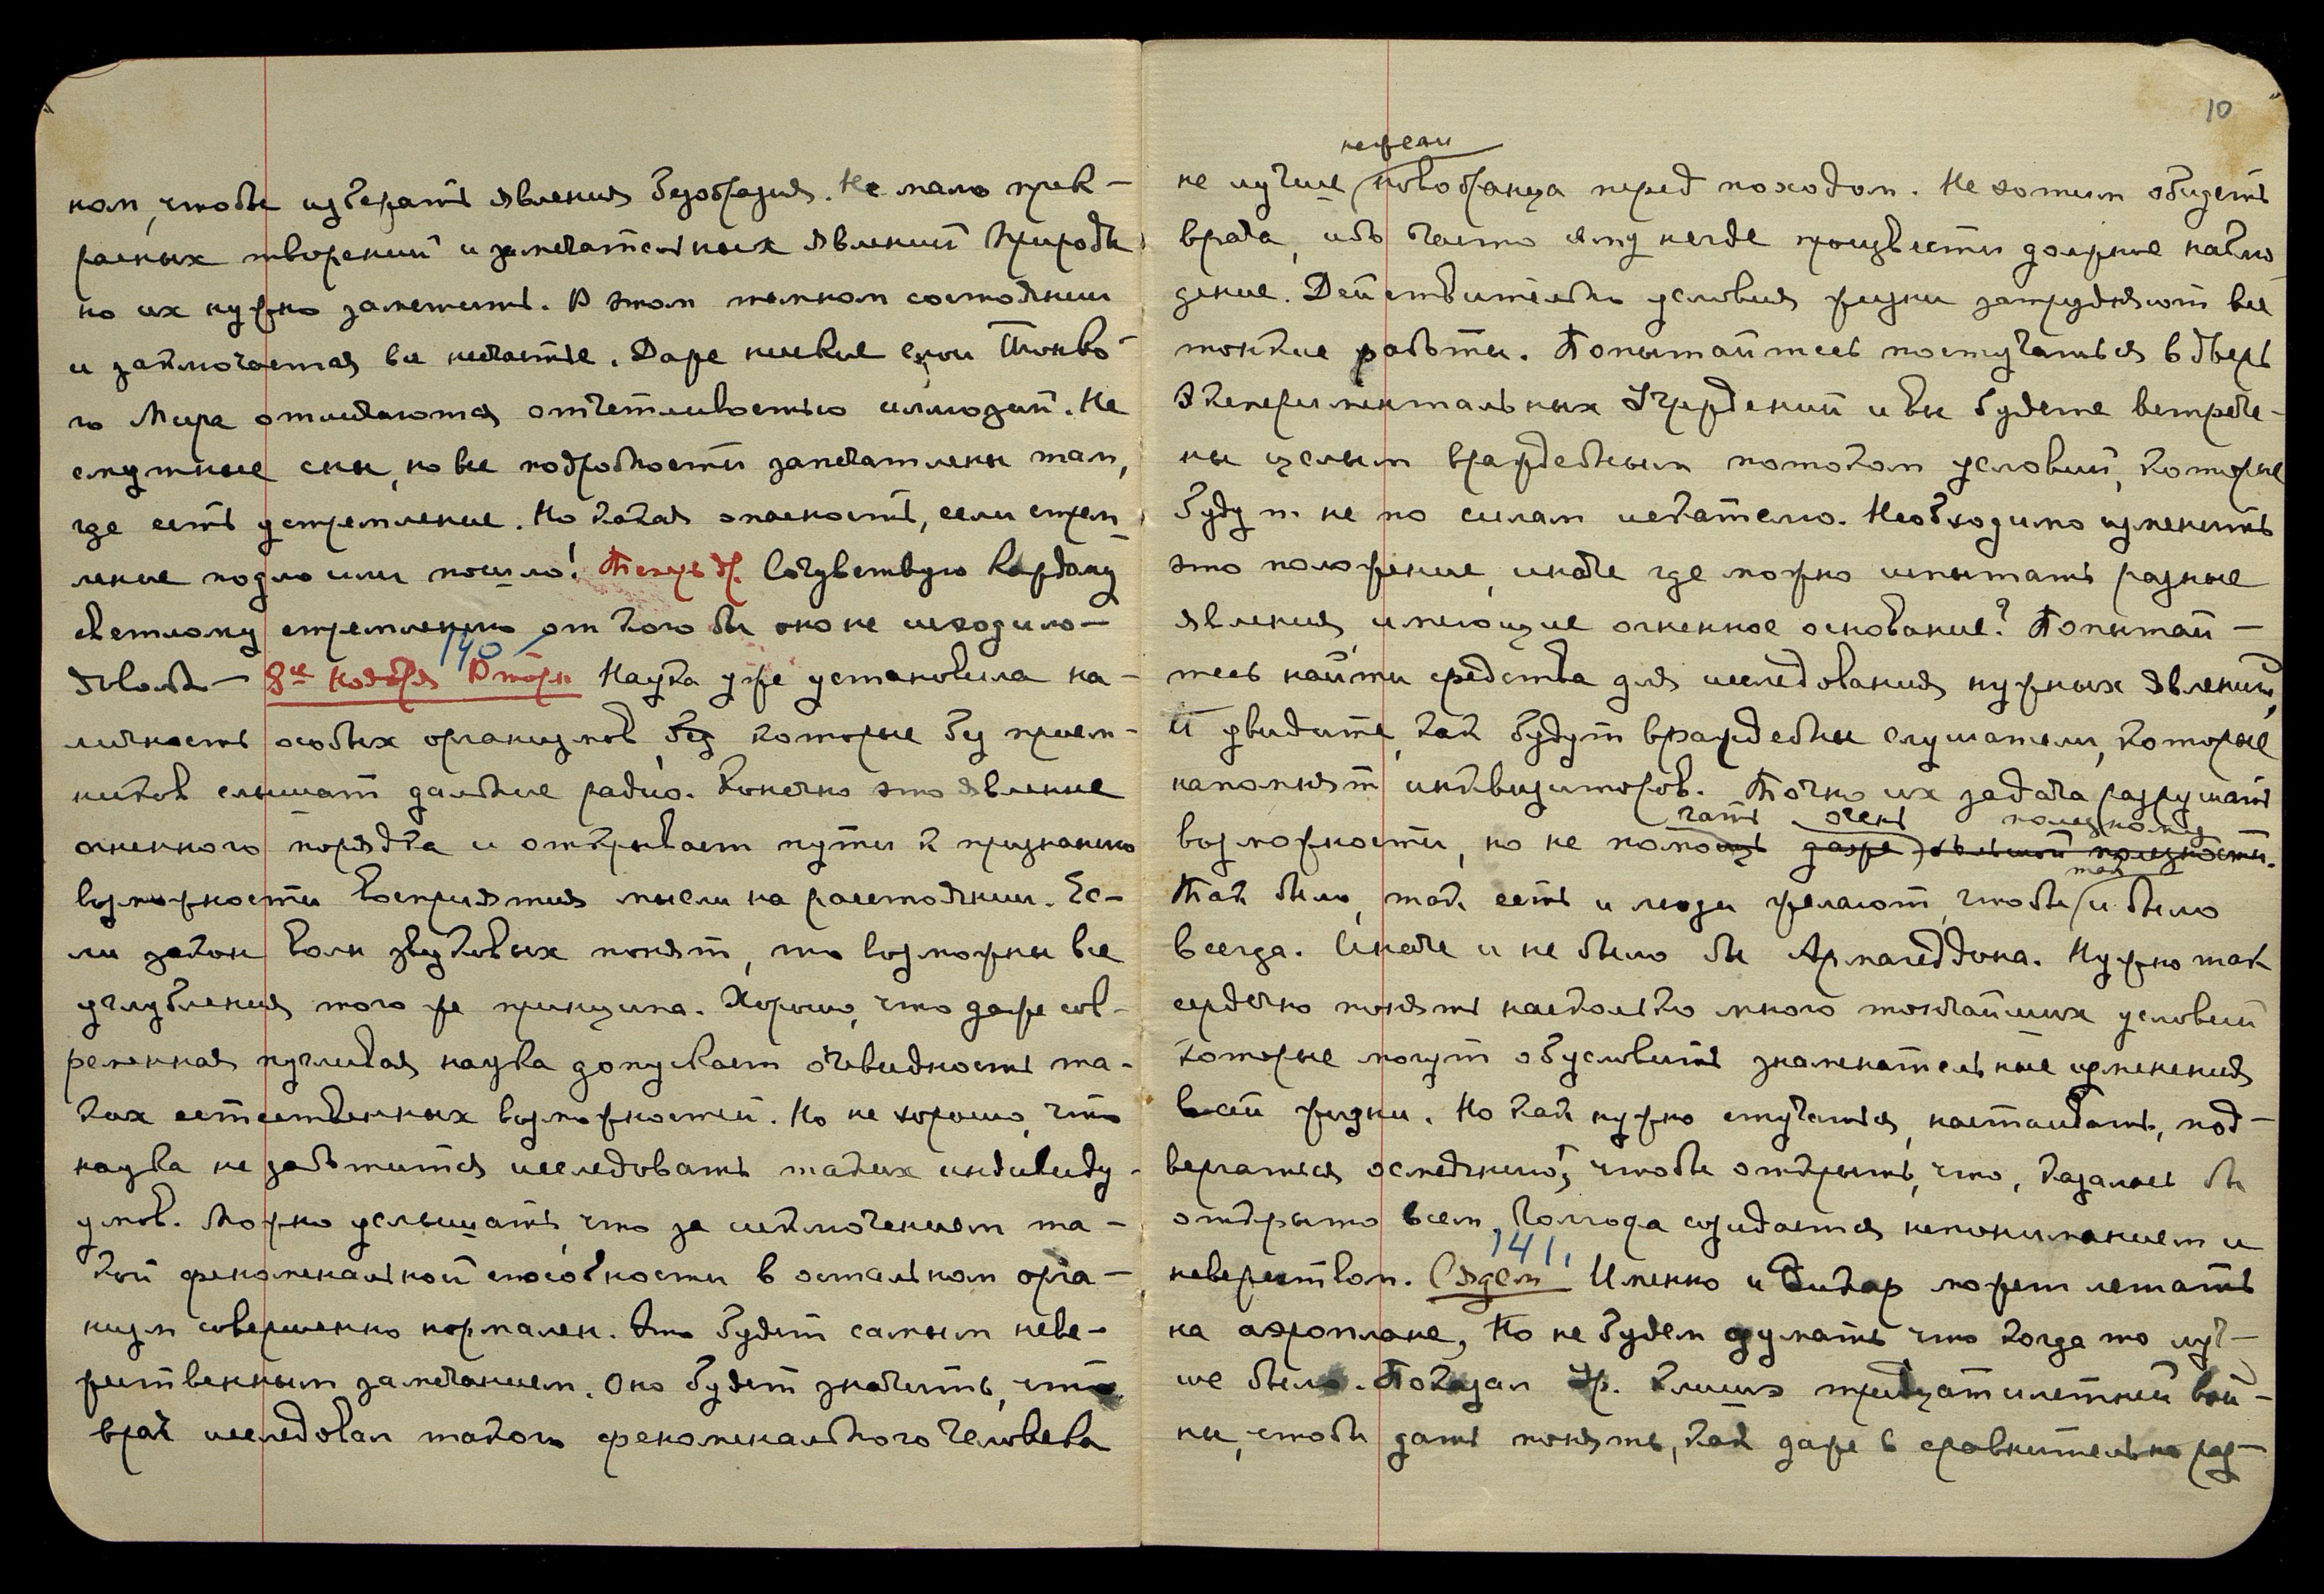 ном, чтобы избегать явления безобразия. Не мало прек-
расных творений и замечательных явлений Природы,
но их нужно заметить. В этом темном состоянии
и заключается все несчастье. Даже некие сны Тонко-
го Мира отличаются отчетливостью эмоций. Не
смутные сны, но все подробности запечатлены там,
где есть устремление. Но какая опасность, если стрем-
ление подло или пошло! Сочувствую каждому
светлому стремлению от кого бы оно не исходило-
140
довольно- 8ое ноября Вторн Наука уже установила на-
личность особых организмов, без которые без прием-
ников слышат дальние радио. Конечно это явление
огненного порядка и открывает пути к признанию
возможности восприятия мысли на расстоянии. Ес-
ли закон волн звуковых понят, то возможны все
углубления того же принципа. Хорошо, что даже сов-
ременная пугливая наука допускает очевидность та-
ких естественных возможностей. Но не хорошо, что
наука не заботится исследовать таких индивиду-
умов. Можно услышать, что за исключением та-
кой феноменальной способности в остальном орга-
низм совершенно нормален. Это будет самым неве-
жественным замечанием. Оно будет значить, что
врач исследовал такого феноменального человека
10
нежели
не лучше новобранца перед походом. Не хотим обидеть
врача, ибо часто ему негде произвести должное наблю-
дение. Действительно условия жизни затрудняют все
тонкие работы. Попытайтесь постучаться в дверь
Экспериментальных Учреждений и вы будете встрече-
ны целым враждебным потоком условий, которые
будут не по силам искателю. Необходимо изменить
это положение, иначе где можно испытать разные
явления, имеющие огненное основание? Попытай-
тесь найти средства для исследования нужных явлений,
И увидите, как будут враждебны слушатели, которые
напомнят инквизиторов. Точно их задача разрушать
гать очень полезному
возможности, но не помощь даже большой полезности.
так
Так было, так есть и люди желают, чтобы и было
всегда. Иначе и не было бы Армагеддона. Нужно так
сердечно понять насколько много тончайших условий
которые могут обусловить знаменательные изменения
всей жизни. Но как нужно стучаться, настаивать, под-
вергаться осмеянию, чтобы открыть, что, казалось бы
открыто всем, Голгофа созидается непониманием и
141.
невежеством. Сядем Именно и Дикарь может летать
на аэроплане, Но не будем думать что когда то луч-
ше было. Показал Ур. клише тридцатилетней вой-
ны, чтобы дать понять, как даже в сравнительно раз-